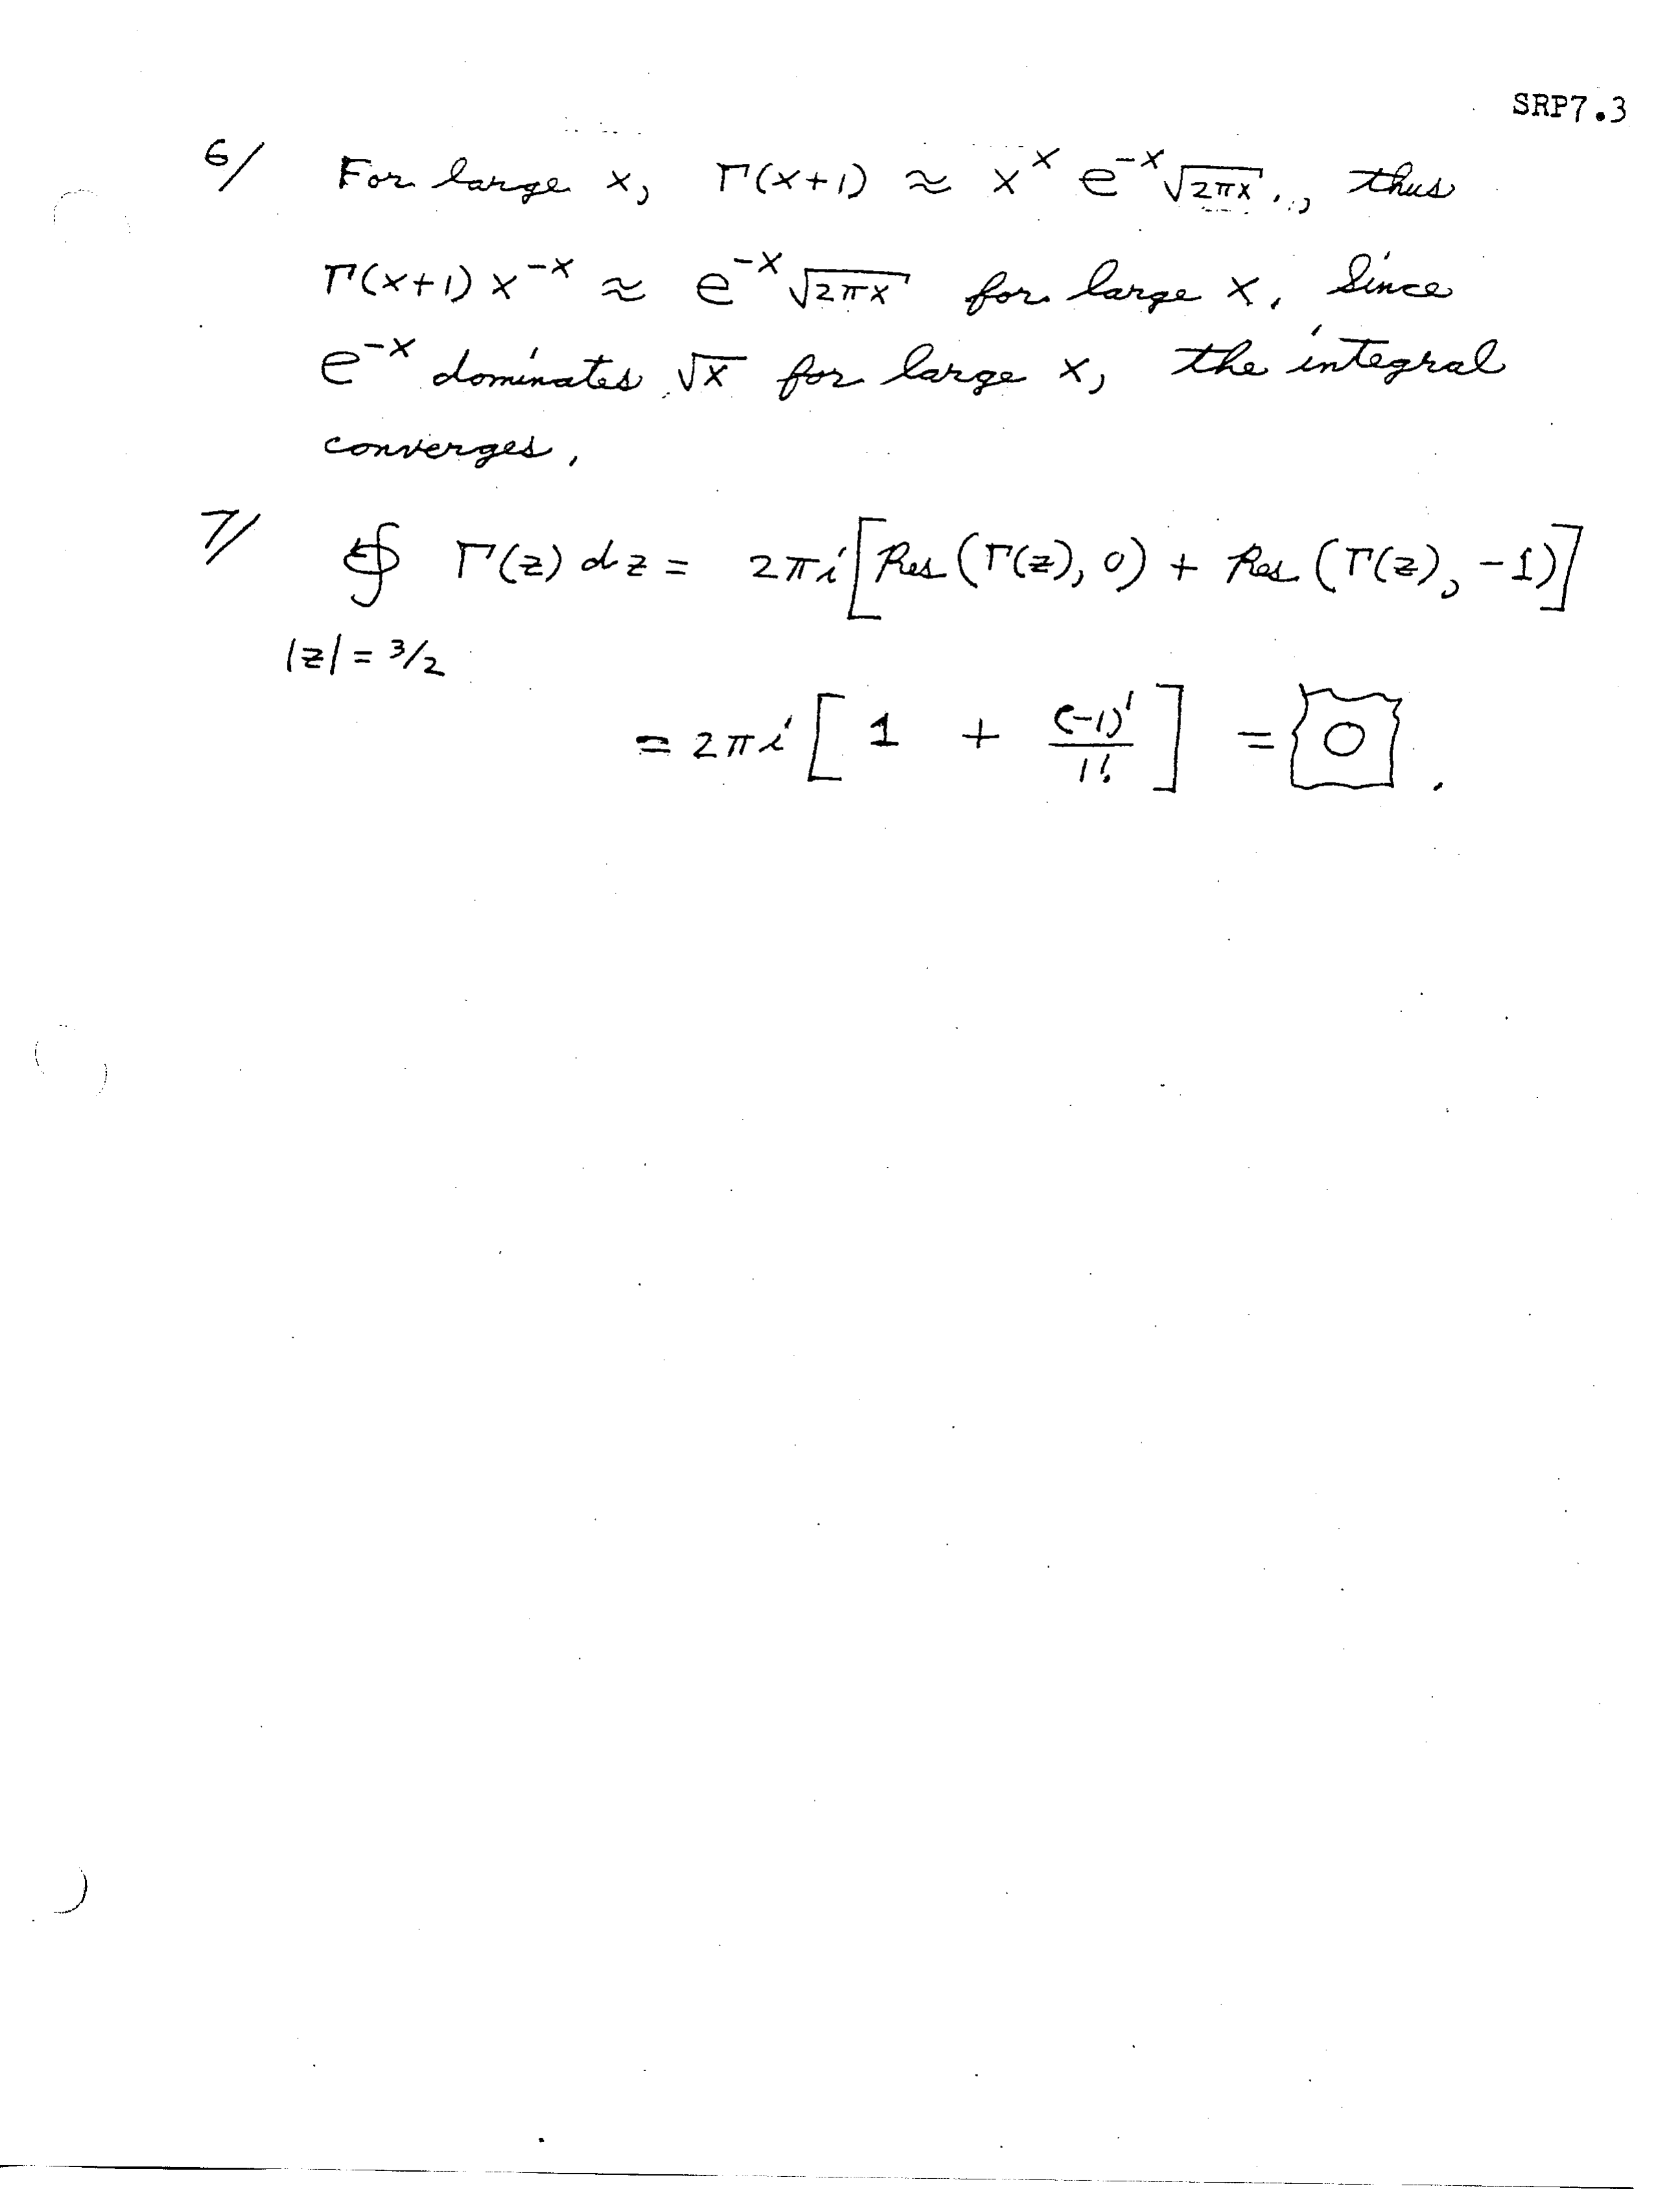 SRP7.3
6/ For large x, Γ(x+1) ≈ x^x e^-x √2πx., thus
Γ(x+1) x^-x ≈ e^-x √2πx for large x. Since
e^-x dominates √x for large x, the integral
converges.
7/ ∮ Γ(z) dz = 2πi [Res (Γ(z), 0) + Res (Γ(z), -1)]
|z| = 3/2
= 2πi [ 1 + (-1)^1/1! ] = 0 .